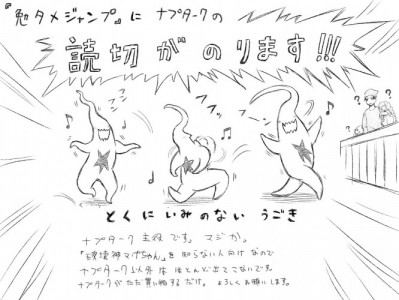 『勉タメジャンプ』に ナプタークの
読切がのります!!!
フン フン
フフッ
フン フン
? ? ?
とくにいみのない うごき
ナプターク 主役 です。 マジか。
「破壊神マグちゃん」を 知らない人向け なので
ナプターク以外は ほとんど出てこないです。
ナプタークがただ買い物するだけ。 よろしくお願いします。